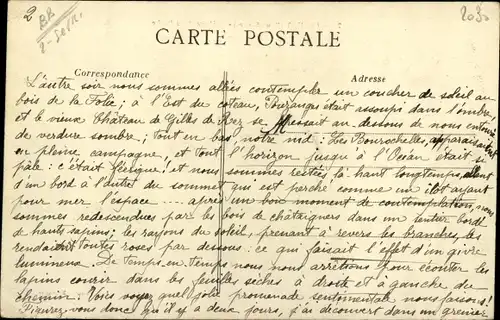 2
BB
2-50 fr.
2030
CARTE POSTALE
Correspondance
Adresse
L'autre soir nous sommes allés contempler un coucher de soleil au
bois de la Folie ; à l'Est du coteau, Pouzauges était assoupi dans l'ombre,
et le vieux Château de Gilles de Rez se dressait au dessous de nous entouré
de verdure sombre ; tout en bas, notre nid : Les Bourochelles, apparaissait
en pleine campagne, et tout l'horizon jusque à l'Océan était si
pâle : c'était féerique ; et nous sommes restés là haut longtemps, allant
d'un bord à l'autre du sommet qui est perché comme un îlot ayant
pour mer l'espace ... après un bon moment de contemplation, nous
sommes redescendus par les bois de châtaigners dans un sentier bordé
de hauts sapins ; les rayons du soleil, prenant à revers les branches, les
rendaient toutes roses par dessous : ce qui faisait l'effet d'un givre
lumineux. De temps en temps nous nous arrêtions pour écouter les
lapins courir dans les feuilles sèches à droite et à gauche du
chemin. Vous voyez quel jolie promenade sentimentale nous faisons !
Figurez-vous donc qu'il y a deux jours, j'ai découvert dans un grenier